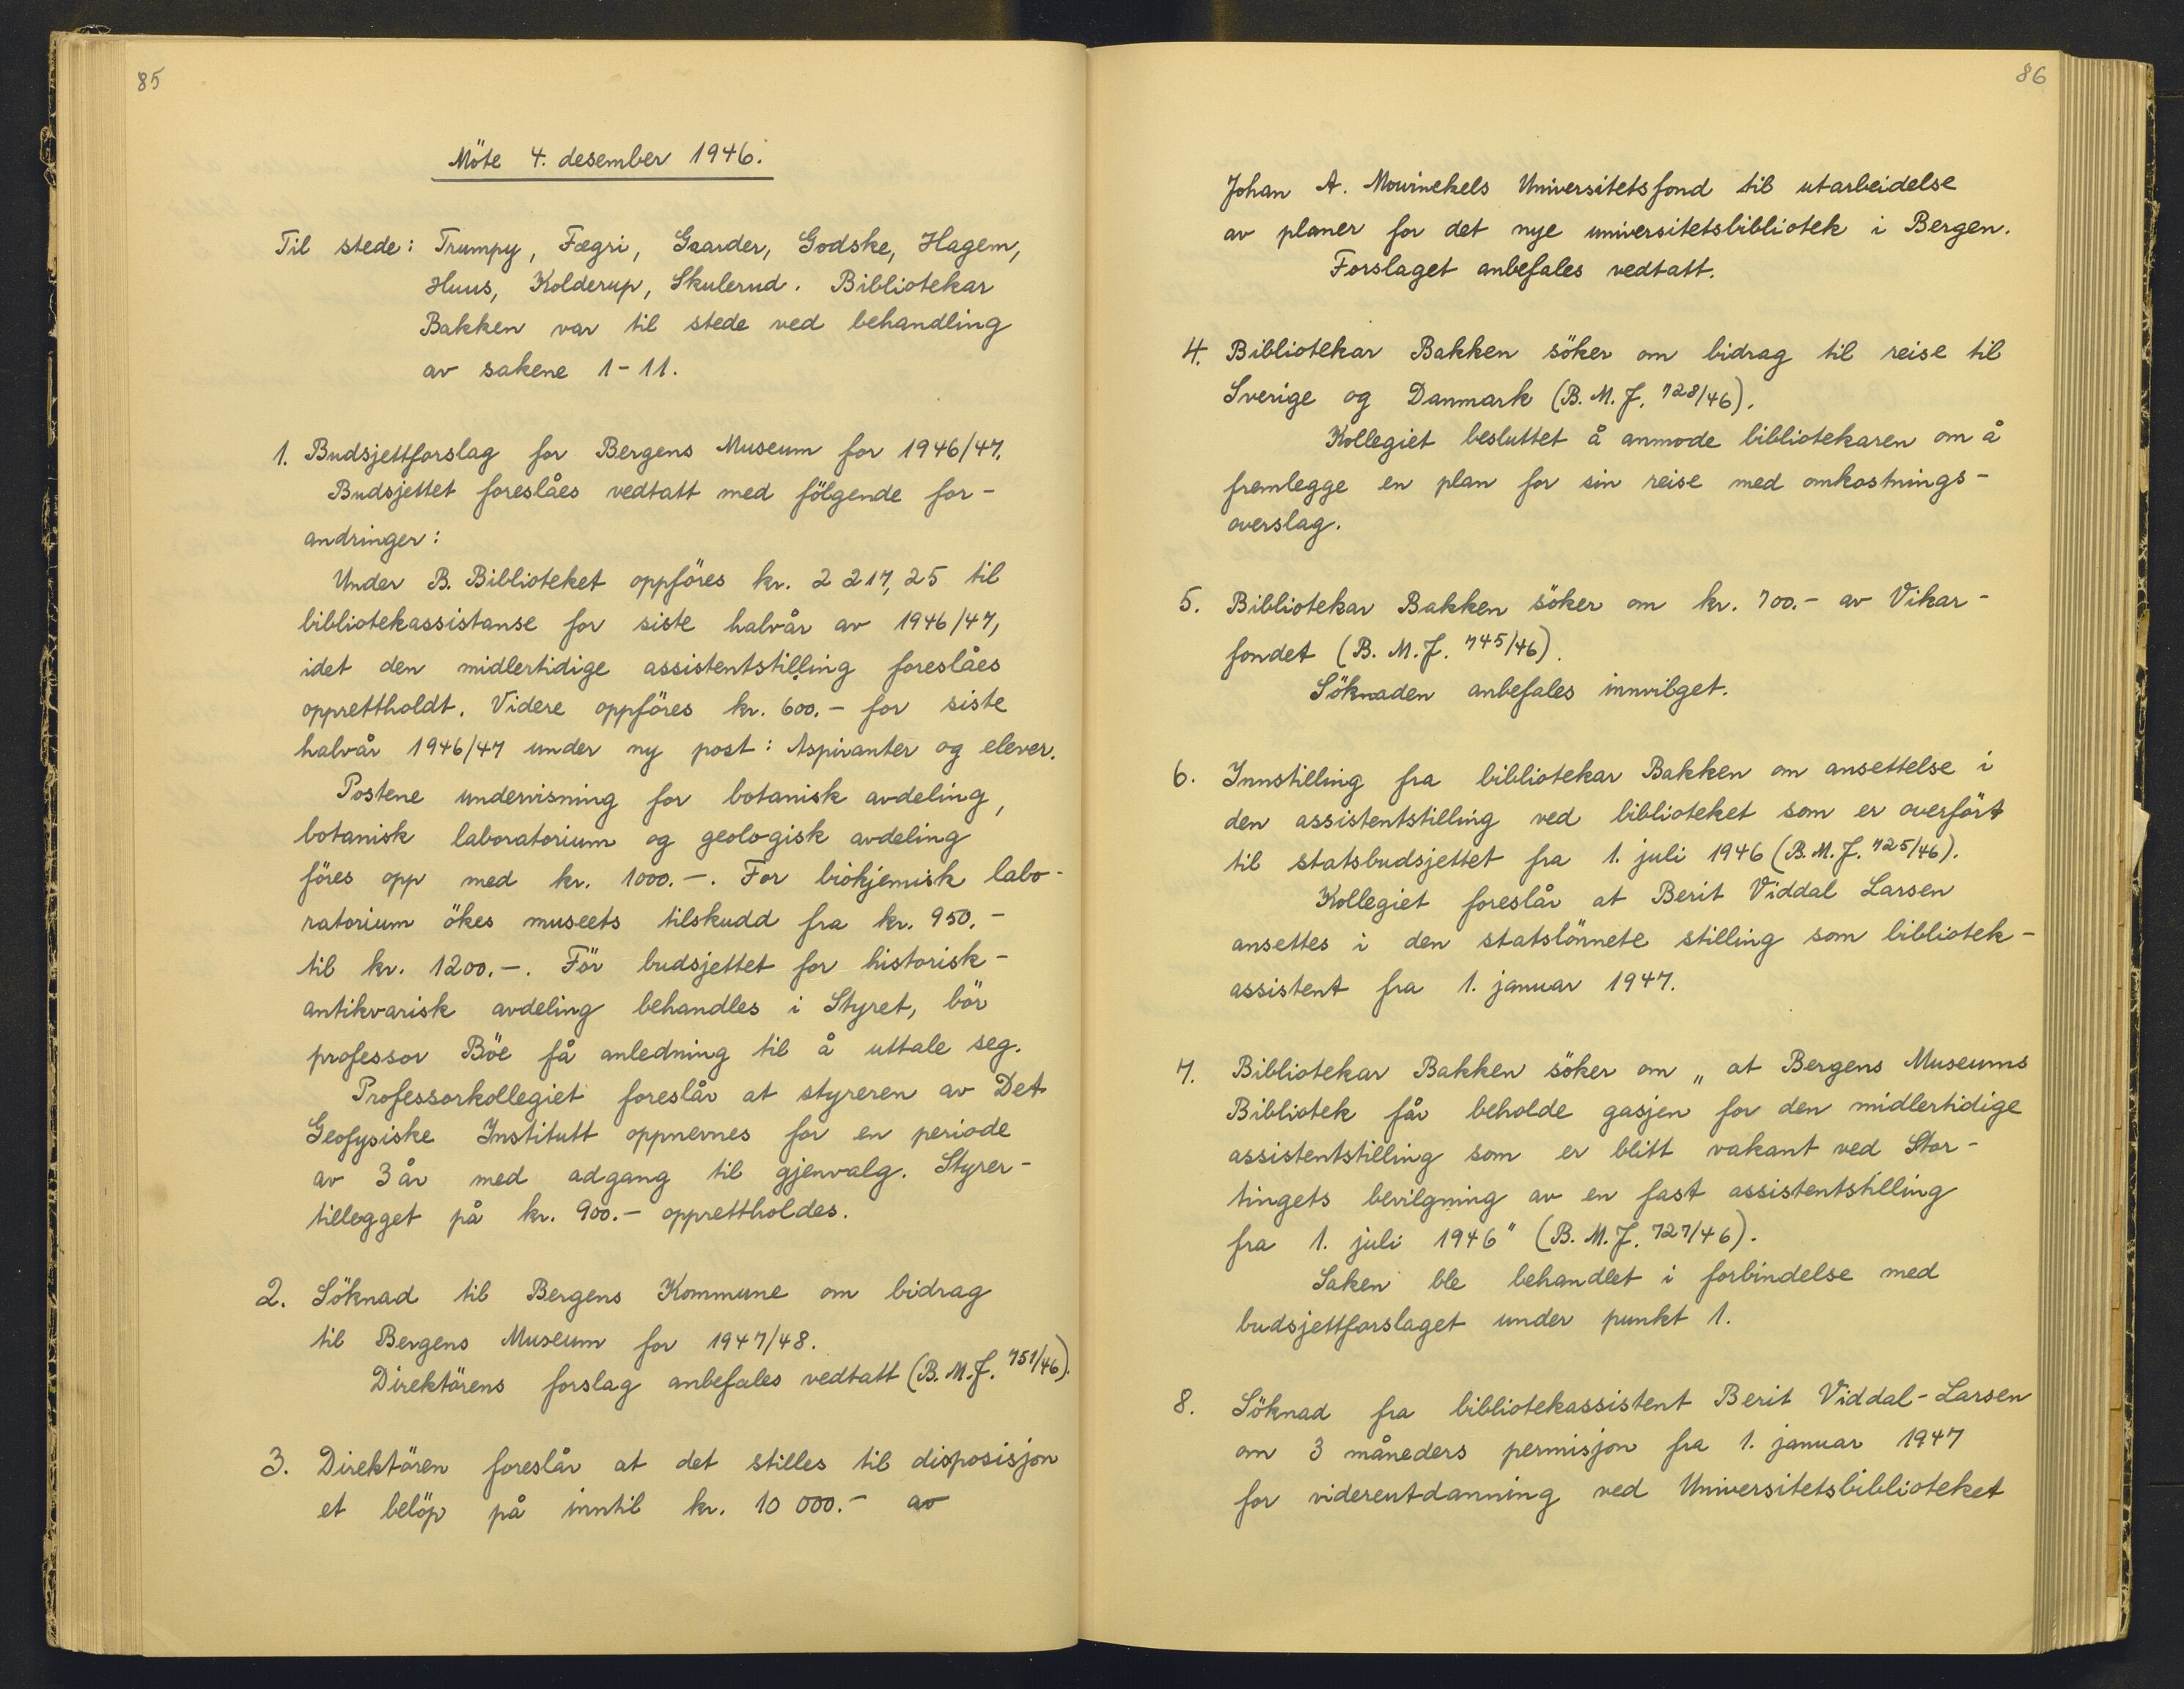 85
Möte 4. desember 1946.
Til stede: Trumpy, Fægri, Gaarder, Godske, Hagem,
Huus, Kolderup, Skulerud. Bibliotekar
Bakken var til stede ved behandling
av sakene 1-11.
1. Budsjettforslag for Bergens Museum for 1946/47.
Budsjettet foreslåes vedtatt med fölgende for-
andringer:
Under B. Biblioteket oppföres kr. 2 217,25 til
bibliotekassistanse for siste halvår av 1946/47,
idet den midlertidige assistentstilling foreslåes
opprettholdt. Videre oppföres kr. 600.- for siste
halvår 1946/47 under ny post: Aspiranter og elever.
Postene undervisning for botanisk avdeling,
botanisk laboratorium og geologisk avdeling
föres opp med kr. 1000.-. For biokjemisk labo-
ratorium ökes museets tilskudd fra kr. 950.-
til kr. 1200.-. För budsjettet for historisk-
antikvarisk avdeling behandles i Styret, bör
professor Böe få anledning til å uttale seg.
Professorkollegiet foreslår at styreren av Det
Geofysiske Institutt oppnevnes for en periode
av 3 år med adgang til gjenvalg. Styrer-
tillegget på kr. 900.- opprettholdes.
2. Söknad til Bergens Kommune om bidrag
til Bergens Museum for 1947/48.
Direktörens forslag anbefales vedtatt (B. M. J. 751/46).
3. Direktören foreslår at det stilles til disposisjon
et belöp på inntil kr. 10 000.- av
86
Johan A. Mowinckels Universitetsfond til utarbeidelse
av planer for det nye universitetsbibliotek i Bergen.
Forslaget anbefales vedtatt.
4. Bibliotekar Bakken söker om bidrag til reise til
Sverige og Danmark (B. M. J. 728/46).
Kollegiet besluttet å anmode bibliotekaren om å
fremlegge en plan for sin reise med omkostnings-
overslag.
5. Bibliotekar Bakken söker om kr. 700.- av Vikar-
fondet (B. M. J. 745/46).
Söknaden anbefales innvilget.
6. Innstilling fra bibliotekar Bakken om ansettelse i
den assistentstilling ved biblioteket som er overfört
til statsbudsjettet fra 1. juli 1946 (B. M. J. 725/46).
Kollegiet foreslår at Berit Viddal Larsen
ansettes i den statslönnete stilling som bibliotek-
assistent fra 1. januar 1947.
7. Bibliotekar Bakken söker om „at Bergens Museums
Bibliotek får beholde gasjen for den midlertidige
assistentstilling som er blitt vakant ved Stor-
tingets bevilgning av en fast assistentstilling
fra 1. juli 1946" (B. M. J. 727/46).
Saken ble behandlet i forbindelse med
budsjettforslaget under punkt 1.
8. Söknad fra bibliotekassistent Berit Viddal-Larsen
om 3 måneders permisjon fra 1. januar 1947
for videreutdanning ved Universitetsbiblioteket